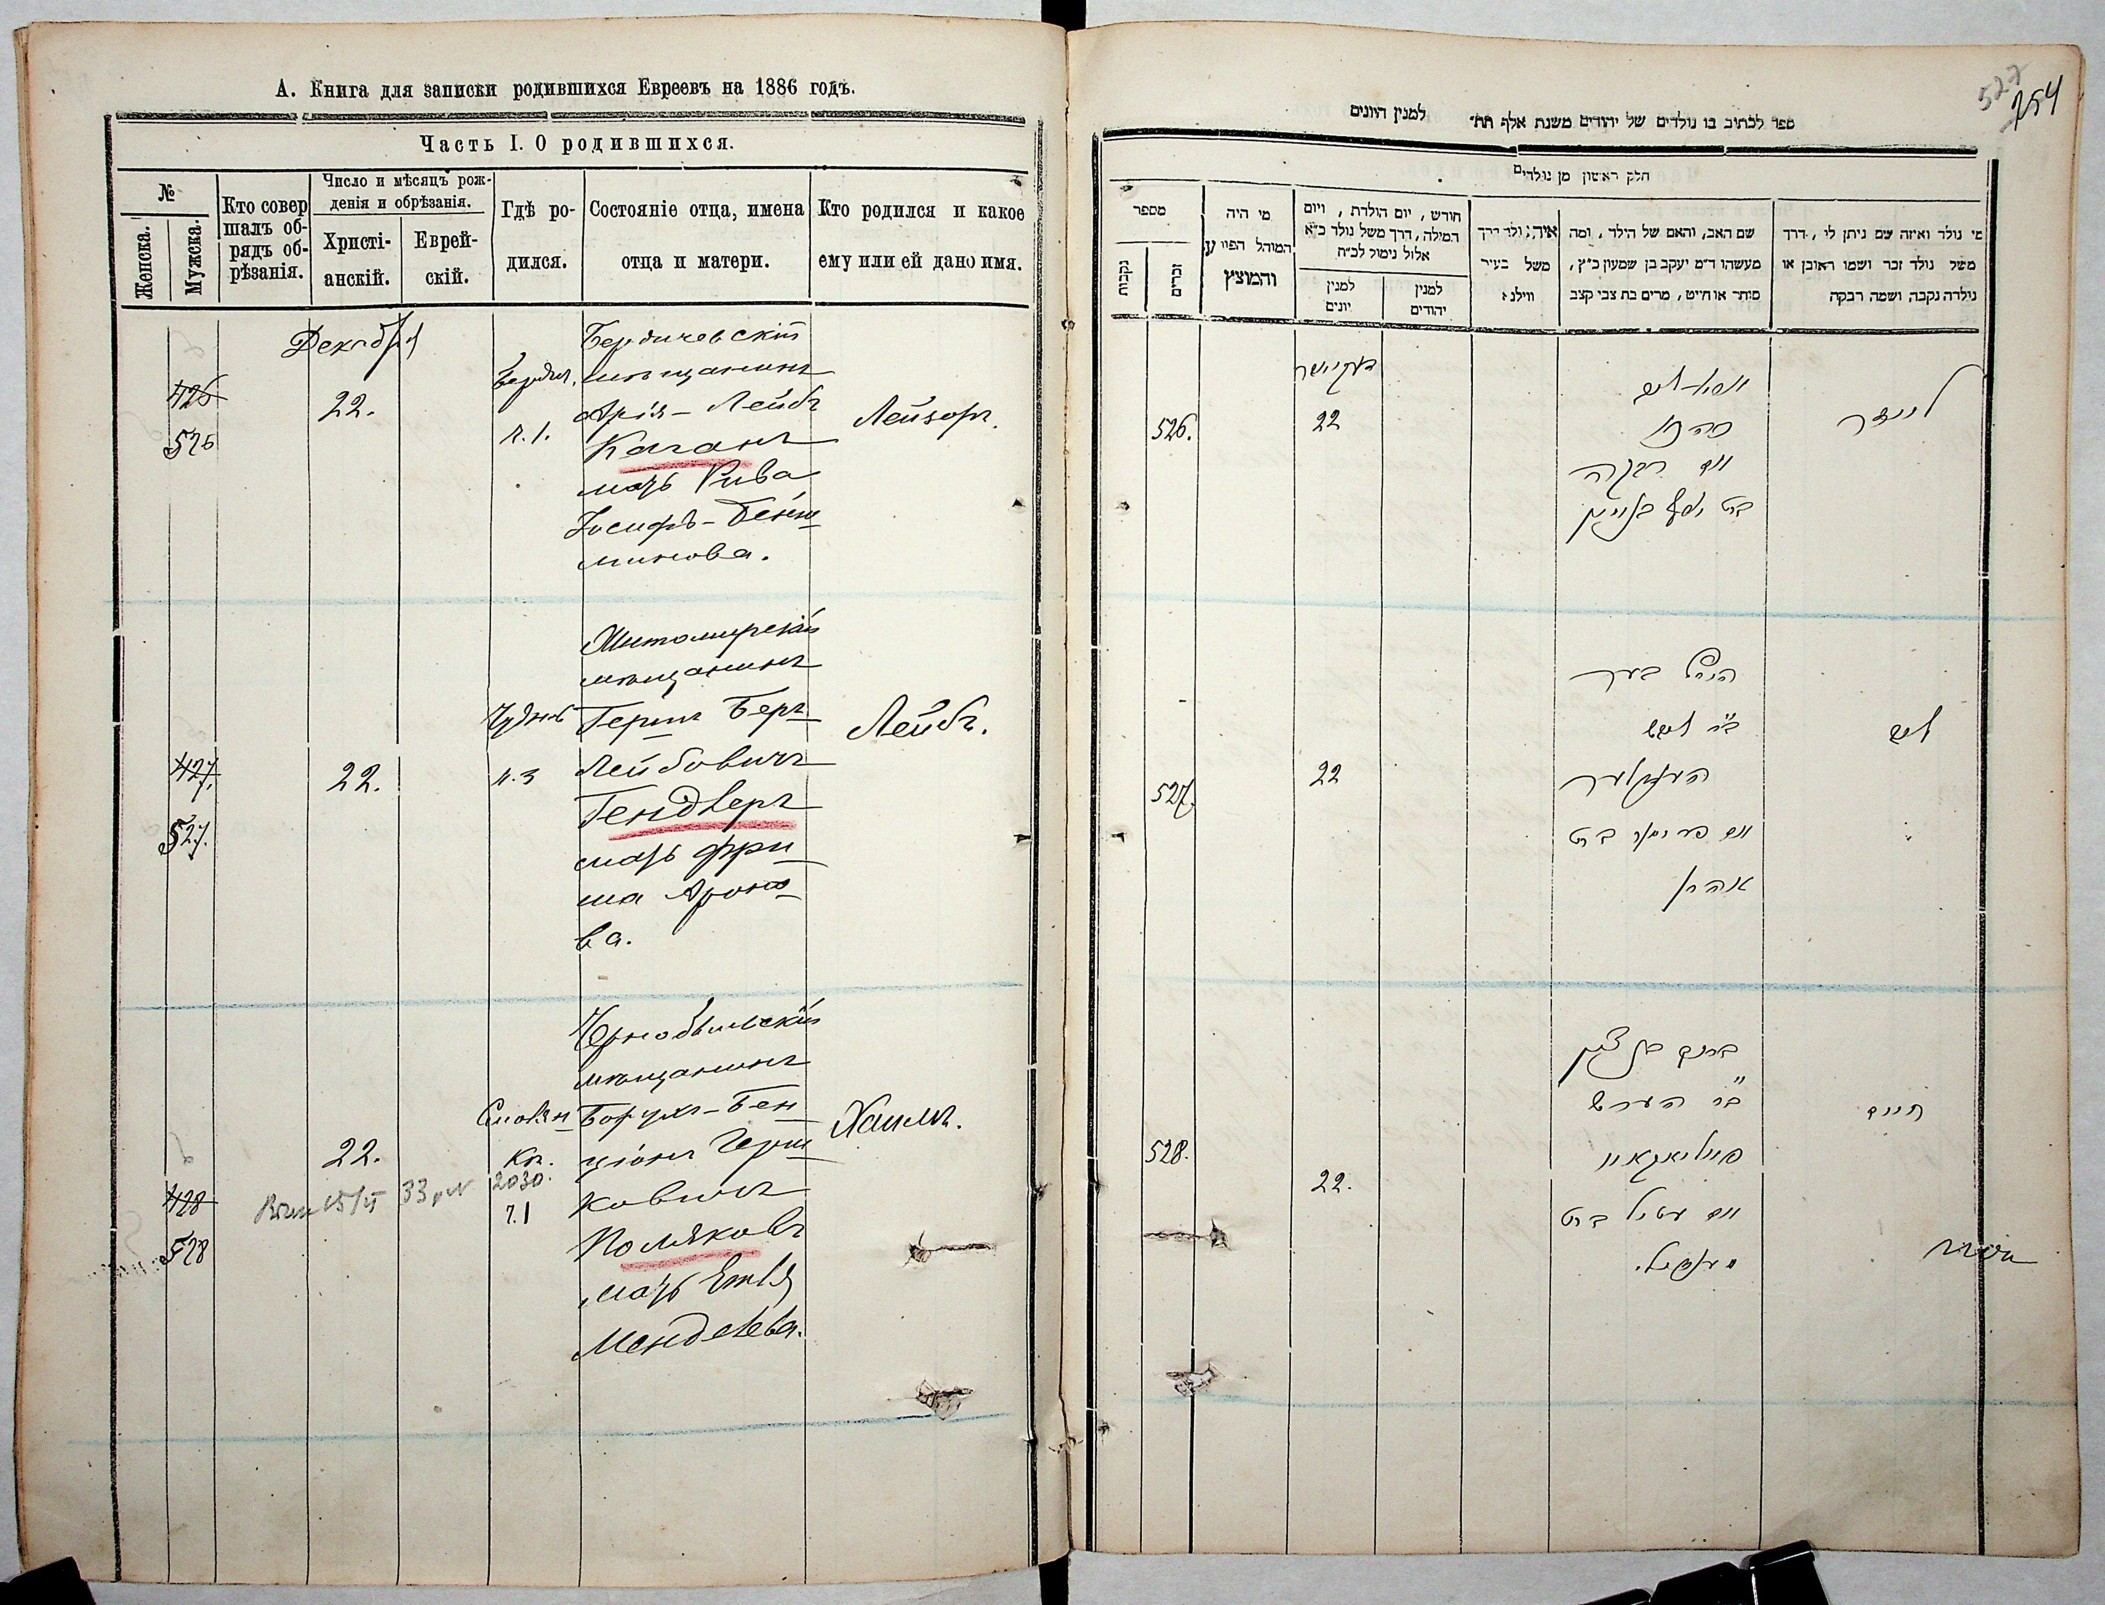 А. Книга для записки родившихся Евреевъ на 1886 годъ.
Часть I. О родившихся.
№
Женска.
Мужска.
Кто совер
шалъ об-
рядъ об-
рѣзанія.
Число и мѣсяцъ рож-
денія и обрѣзанія.
Христі-
анскій.
Еврей-
скій.
Гдѣ ро-
дился.
Состояніе отца, имена
отца и матери.
Кто родился и какое
ему или ей дано имя.
Декабря
426
526
22.
ч. 1.
Бердичевскій
мѣщанинъ
Арія-Лейбъ
Каганъ
мать Рива
Іосифъ-Беня
минова.
Лейзоръ.
427.
527.
22.
Чудновъ
ч. 3
Житомирскій
мѣщанинъ
Гершъ Беръ
Лейбовичъ
Гендлеръ
мать Фри
ма Ароно
ва.
Лейбъ.
428
528
22.
2030.
ч. 1
Чернобыльскій
мѣщанинъ
Борухъ-Бен
ціонъ Герш
ковичъ
Поляковъ
мать Этля
Менделева.
Хаимъ.
527
254
ספר לכתיב בו נולדים של יהודים משנת אלף תת״ למנין היונים
חלק ראשון מן נולדים
מספר
נקבות
זכרים
מי היה
המוהל הפורע
והמוצץ
חודש, יום הולדת, ויום
המילה, דרך משל נולד כ״א
אלול נימול לכ״ח
למנין
יונים
למנין
יהודים
איה נולד דרך
משל בעיר
ווילנא
שם האב, והאם של הילד, ומה
מעשהו ד״מ יעקב בן שמעון כ״ץ,
סוחר או חייט, מרים בת צבי קצב
מי נולד ואיזה שם ניתן לו, דרך
משל נולד זכר ושמו ראובן או
נולדה נקבה ושמה רבקה
דעקייאבר
526.
22
כהן
ואם רבקה
בת יוסף בנימין
לייזר
527.
22
הירש בער
ב״ר לייב
הענדלער
ואם פרימא בת
אהרן
לייב
528.
22.
ברוך בן ציון
ב״ר הערש
פאליאקאוו
ואם עטיל בת
מענדיל.
חיים